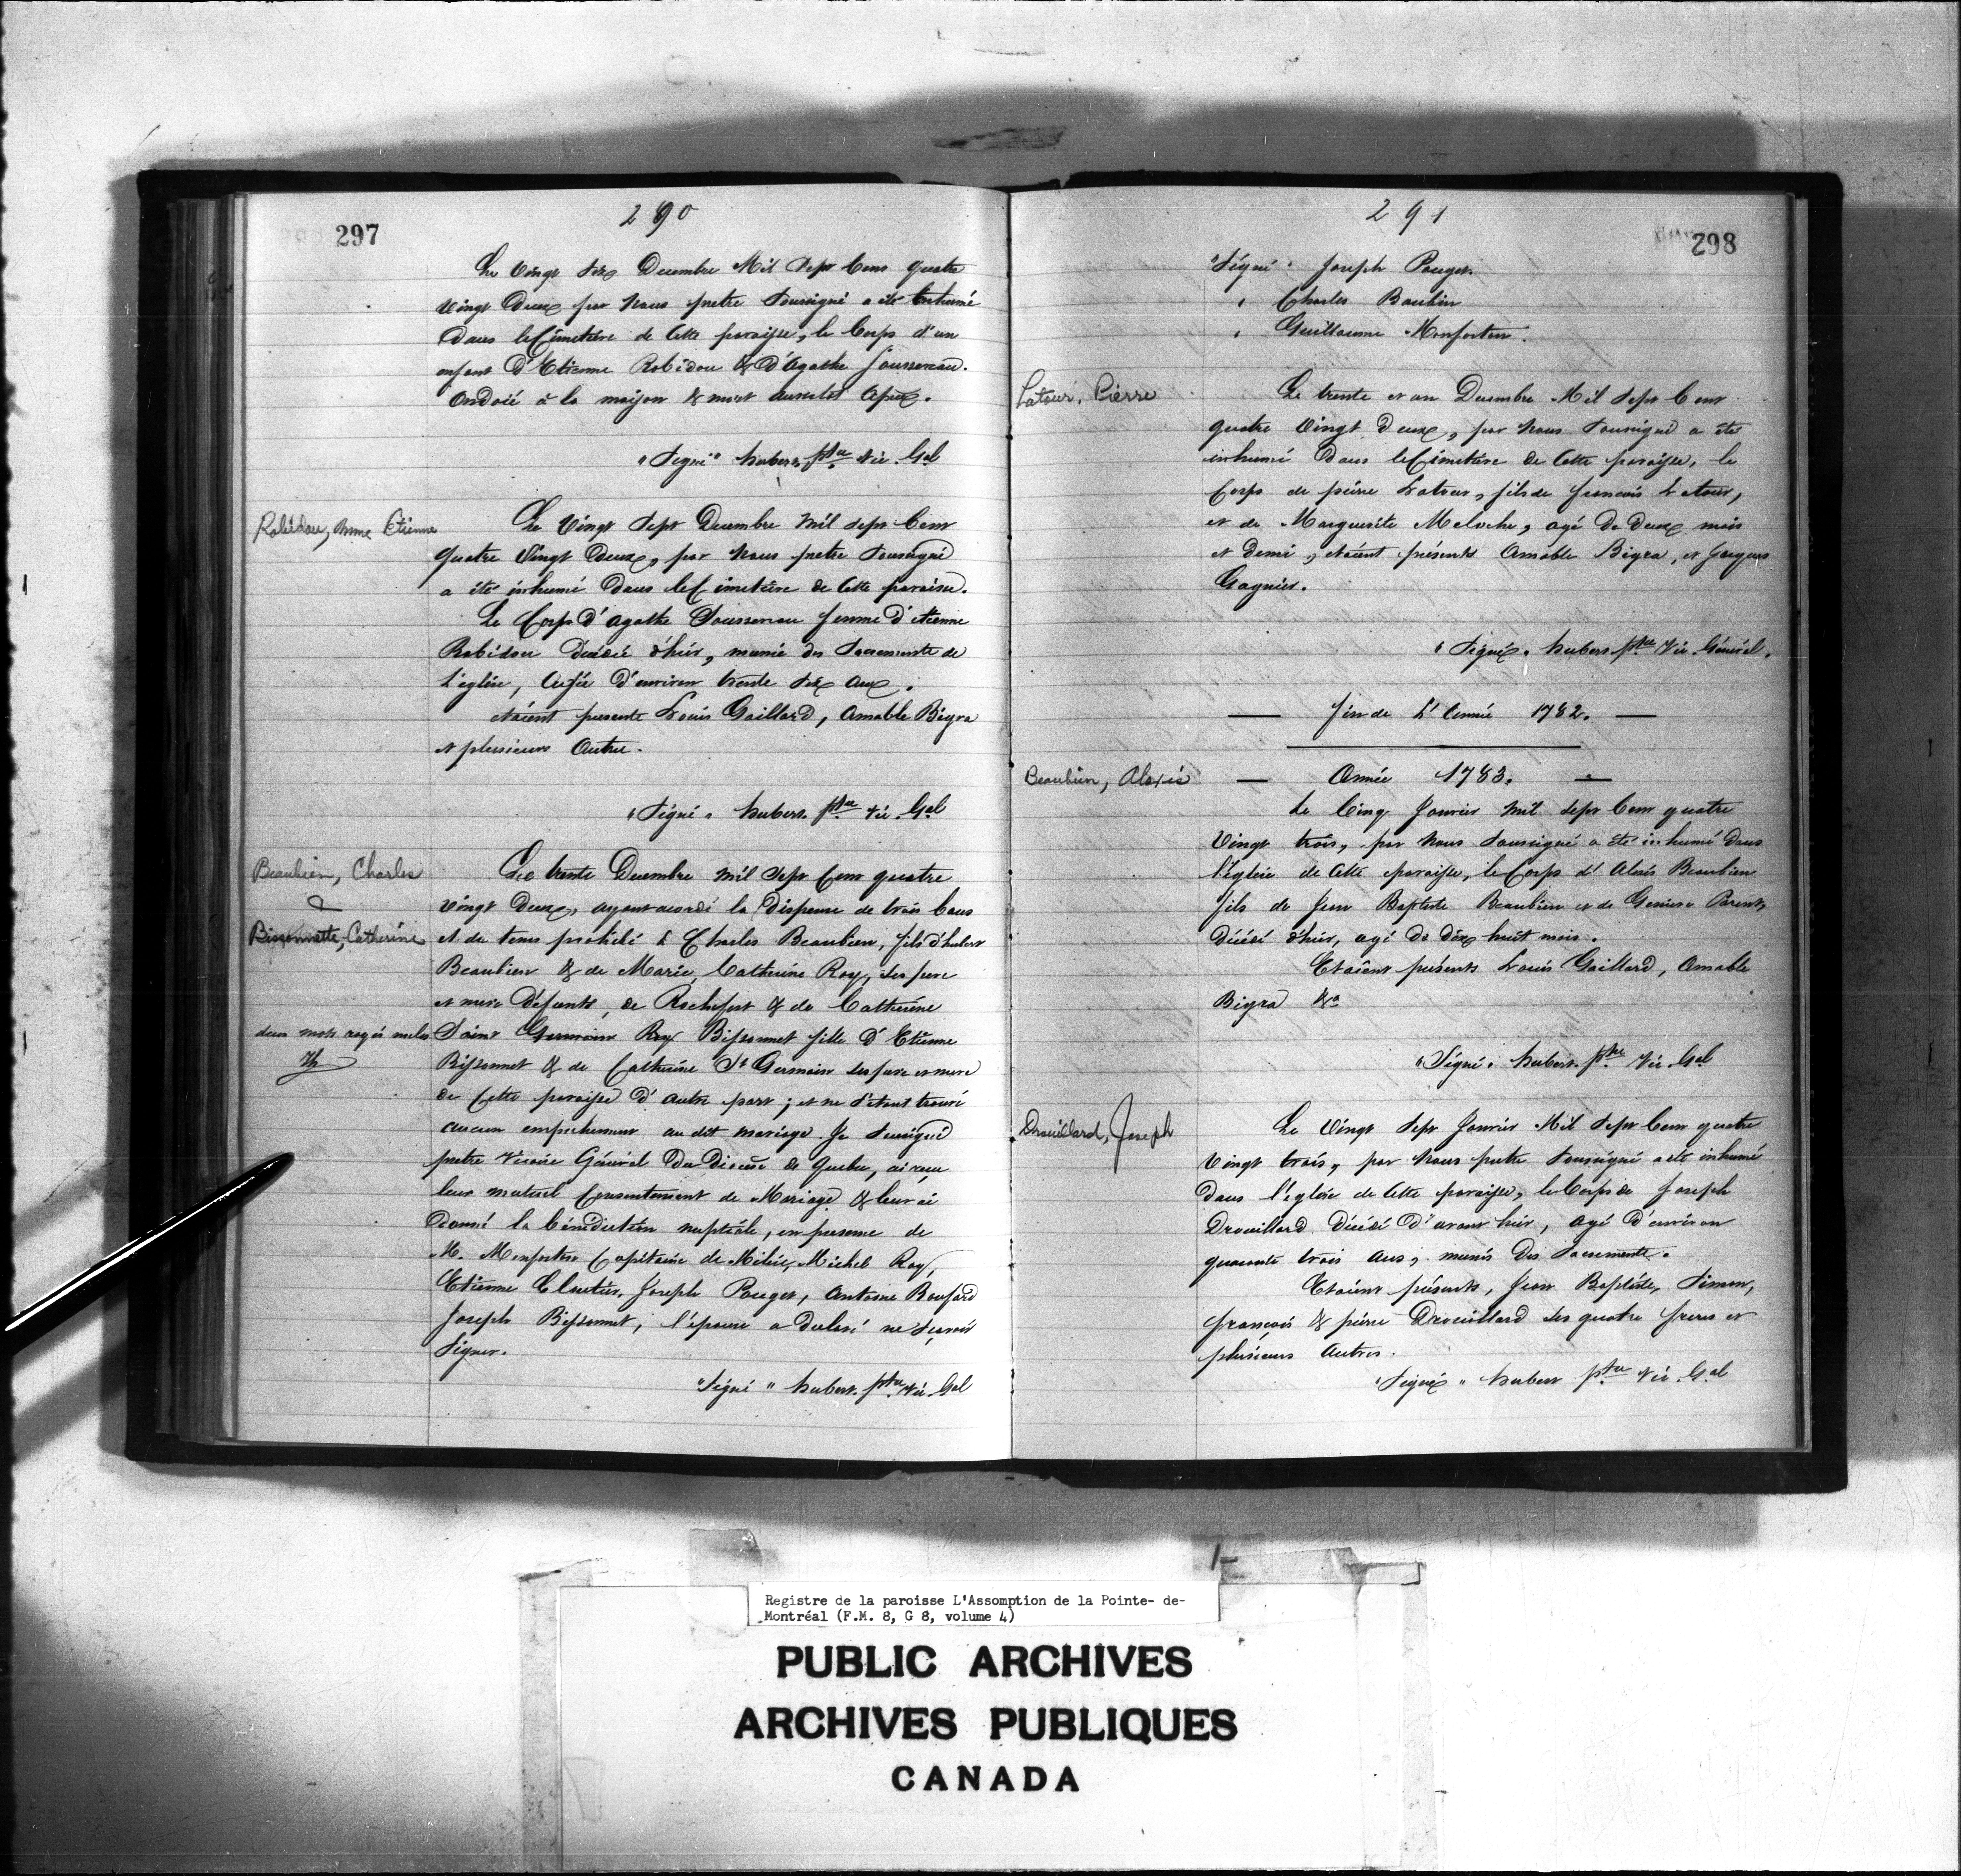 290
297
Le Vingt Six Decembre Mil Sept Cens quatre
vingt Deux par Nous pretre Soussigné a été Inhumé
Dans le Cimetière de Cette paroisse, le Corps d'un
enfant D'Etienne Robidou & D'Agathe Joussereau.
Ondoié à la maison & mort aussitot Apres.
"Signé" hubert ptre Vic. Gal
Robidou, Mme Etienne
Le Vingt Sept Decembre Mil Sept Cent
quatre Vingt Deux, par Nous pretre Soussigné
a été inhumé Dans le Cimetière de Cette paroisse.
Le Corps d'agathe Jousserau femme d'etienne
Robidou Decédée d'hier, munie des Sacrements de
L'eglise, Agée D'environ trente Six Ans.
étaient presents Louis Gaillard, Amable Bigra
et plusieurs Autre.
"Signé" hubert ptre Vic. Gal
Beaubien, Charles
&
Bissonnette, Catherine
Le trente Decembre Mil Sept Cent quatre
vingt Deux, ayant acordé la Dispense de trois bans
et de tems prohibé à Charles Beaubien, fils d'hubert
Beaubien & de Marie Catherine Roy, ses pere
et mere Défunts, de Rochefort & de Catherine
deux mots rayés nuls
Saint Germain Roy Bissonnet fille d'Etienne
Bissonnet & de Catherine St Germain ses pere et mere
de Cette paroisse D'autre part; et ne S'etant trouvé
aucun empechement au dit mariage. Je Soussigné
pretre Vicaire Général Du Diocése de Quebec, ai reçu
leur mutuel Consentement de Mariage & leur ai
Donné la bénédiction nuptiale, en presence de
M. Monforton Capitaine de Milice, Michel Roy,
Etienne Cloutier, Joseph Pouget, Antoine Boufard
Joseph Bissonnet, l'épouse a declaré ne Sçavoir
Signer.
"Signé" hubert ptre Vic. Gal
291
298
"Signé" Joseph Pouget.
" Charles Baubin
" Guillaume Monforton.
Latour, Pierre
Le trente et un Decembre Mil Sept Cent
quatre Vingt Deux, par Nous Soussigné a été
inhumé Dans le Cimetière de Cette paroisse, le
Corps de pierre Latour, fils de francois Latour,
et de Marguerite Meloche, agé De Deux mois
et Demi, etaient présents Amable Bigra, et Jacques
Gagnier.
"Signé" hubert ptre Vic. Général.
fin de L'Année 1782.
Beaubien, Alexis
Année 1783.
Le Cinq Janvier Mil Sept Cent quatre
Vingt trois, par Nous Soussigné a été inhumé Dans
l'église de Cette paroisse, le Corps d'Alexis Beaubien
fils de Jean Baptiste Beaubien et de Genieve Parent,
Décédé d'hier, agé de dix huit mois.
Etaient présents Louis Gaillard, Amable
Bigra &a
"Signé" hubert. ptre Vic. Gal
Drouillard, Joseph
Le Vingt Sept Janvier Mil Sept Cent quatre
Vingt trois, par Nous pretre Soussigné a été inhumé
Dans l'eglise de Cette paroisse, le Corps de Joseph
Drouillard Décédé D'avant hier, agé d'environ
quarante trois ans, munis Des Sacrements.
Etaient présents, Jean Baptiste, Simon,
françois & pierre Drouillard ses quatre freres et
plusieurs Autres.
"Signé" hubert ptre Vic. Gal
Registre de la paroisse L'Assomption de la Pointe- de-
Montréal (F.M. 8, G 8, volume 4)
PUBLIC ARCHIVES
ARCHIVES PUBLIQUES
CANADA